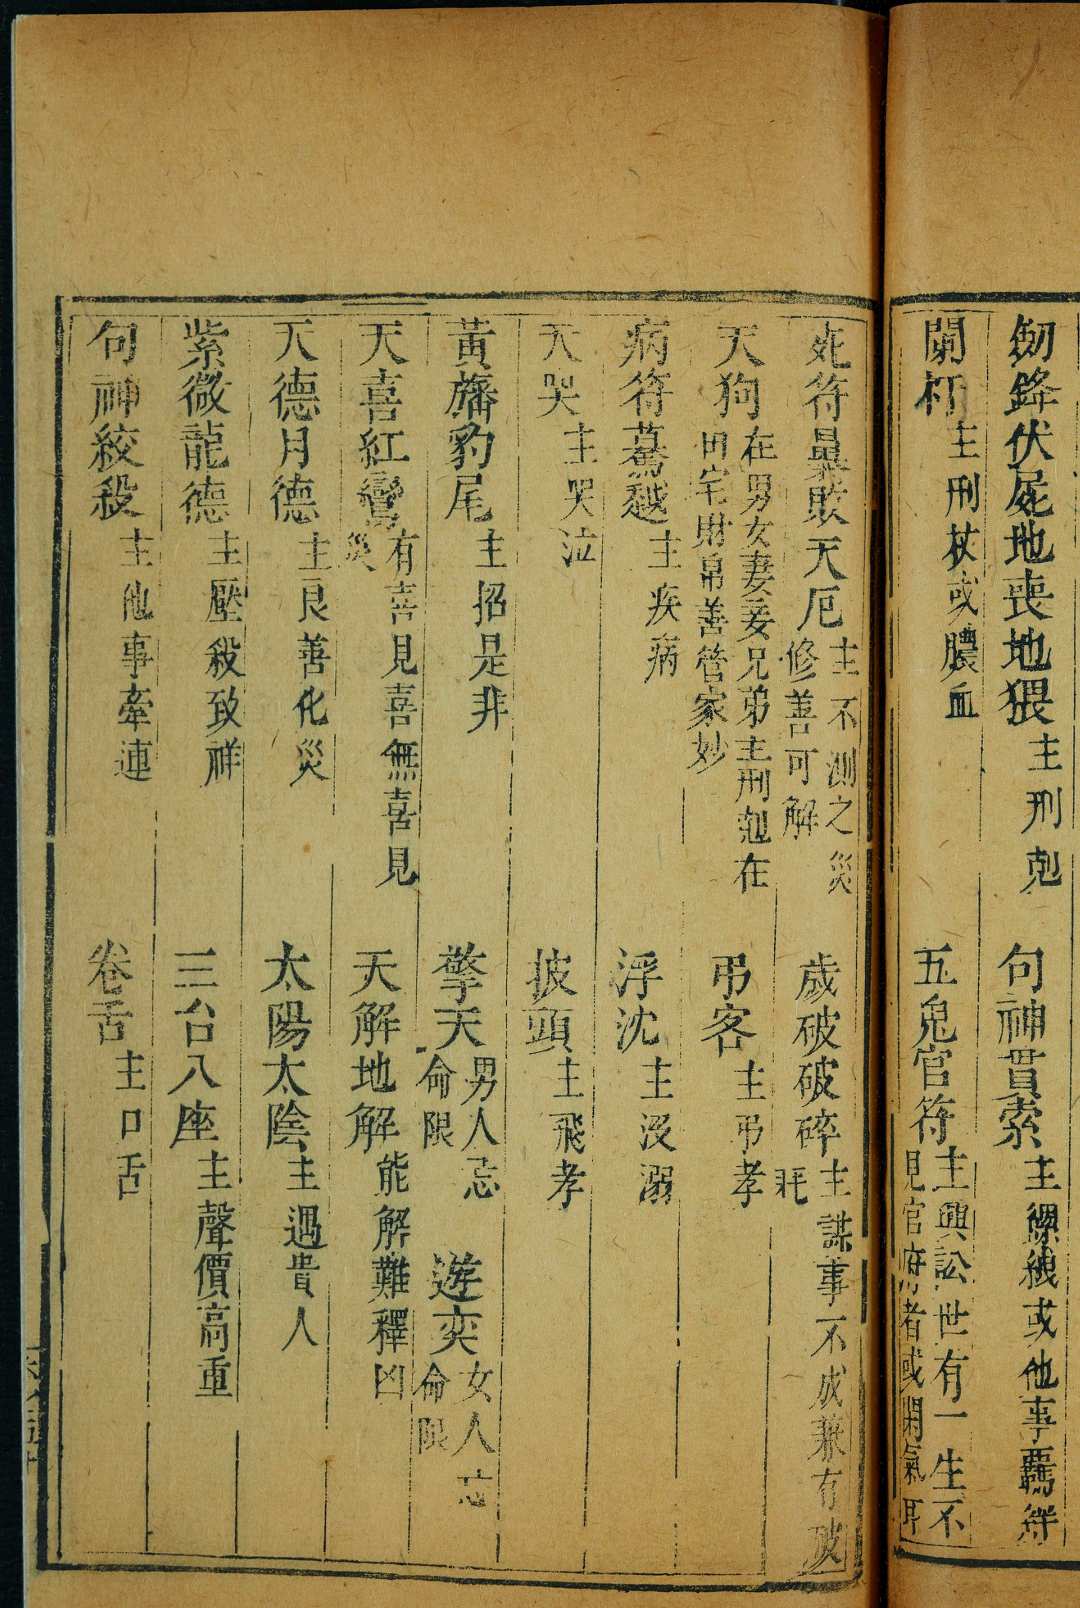 劒鋒伏屍地喪地猥主刑剋　句神貫索主縲絏或他事羈絆
闌杆主刑杖或膿血　五鬼官符主興訟世有一生不見官府者或閑氣耳
死符暴敗天厄主不測之災修善可解　歲破破碎主謀事不成兼有破耗
天狗在男女妻妾兄弟主刑剋在田宅財帛善管家妙　弔客主弔孝
病符驀越主疾病　浮沈主沒溺
天哭主哭泣　披頭主飛孝
黃旛豹尾主招是非　擎天男人忌命限　遊奕女人忌命限
天喜紅鸞有喜見喜無喜見災　天解地解能解難釋凶
天德月德主良善化災　太陽太陰主遇貴人
紫微龍德主壓殺致祥　三台八座主聲價高重
句神絞殺主他事牽連　卷舌主口舌